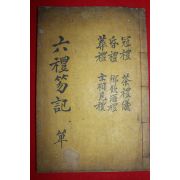 冠禮 祭禮儀
昏禮 鄉飮酒禮
葬禮 士相見禮
六禮笏記 單